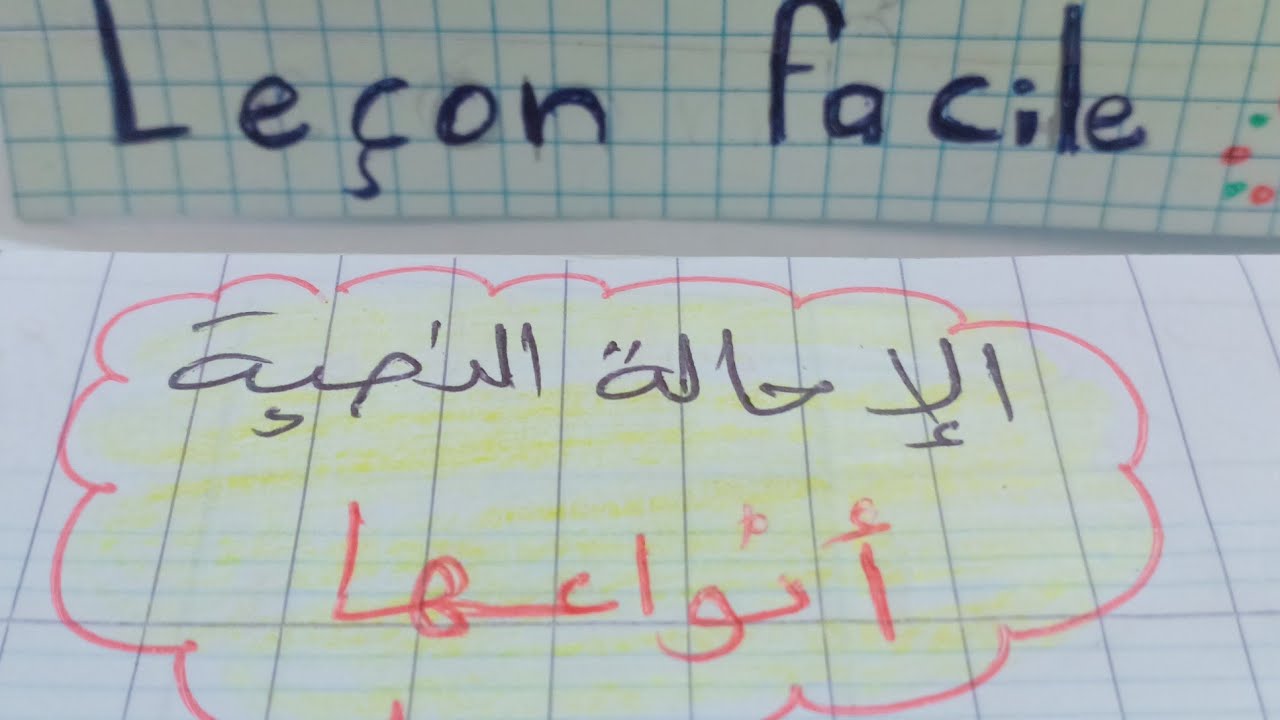 Leçon facile
الإحالة النصية
أنواعها